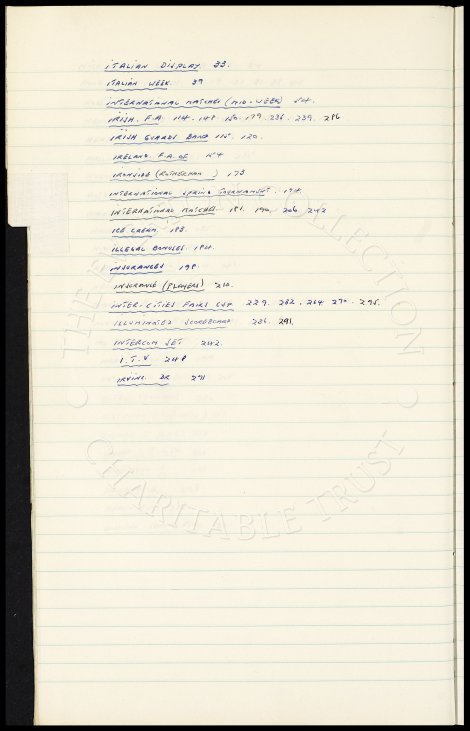 ITALIAN DISPLAY 33.
ITALIAN WEEK. 39
INTERNATIONAL MATCHES (MID-WEEK) 54.
IRISH. F.A. 114. 148. 150. 179. 236. 239. 286
IRISH GUARDS BAND 115. 120.
IRELAND. F.A. OF 154
IRONSIDE (ROTHERHAM ) 173
INTERNATIONAL SPRING TOURNAMENT. 174.
INTERNATIONAL MATCHES 181. 190. 206 242
ICE CREAM. 183.
ILLEGAL BONUSES. 184.
INSURANCES 198.
INSURANCE (PLAYERS) 210.
INTER-CITIES FAIRS CUP 229. 262. 264 270. 295.
ILLUMINATED SCOREBOARD 286. 291.
INTERCOM SET 242.
I.T.V 248
IRVING. DR 271
THE COLLECTION
CHARITABLE TRUST